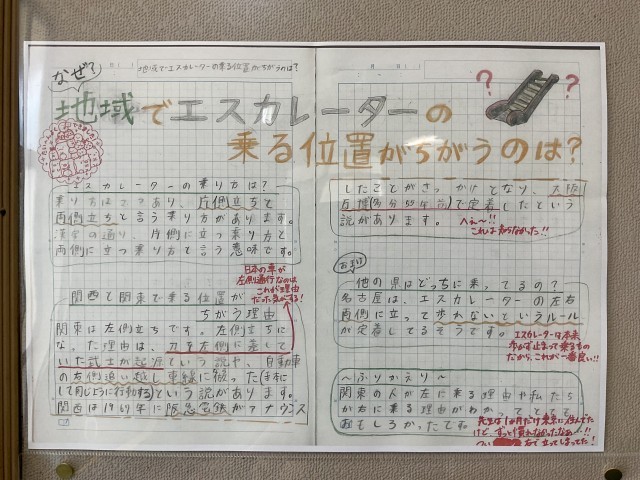 なぜ?
地域でエスカレーターの乗る位置がちがうのは?
地域でエスカレーターの
乗る位置がちがうのは?
エスカレーターの乗り方は?
乗り方は2つあり、片側立ちと
両側立ちと言う乗り方があります。
漢字の通り、片側に立つ乗り方と
両側に立つ乗り方と言う意味です。
日本の車が
左側通行なのは
これが理由
だった気がする!
関西と関東で乗る位置が
ちがう理由
関東は左側立ちです。左側立ちに
なった理由は、刀を左側に差して
いた武士が起源という説や、自動車
の右側追い越し車線に倣った(まね
して同じように行動する)という説があります。
関西は1967年に阪急電鉄がアナウンス
したことがきっかけとなり、大阪
万博(
で定着したという
説があります。
へぇ〜!!
これは知らなかった!!
おまけ
他の県はどっちに乗ってるの?
名古屋は、エスカレーターの左右
両側に立って歩かないというルール
が定着してるそうです。
エスカレーターは本来
歩かず止まって乗るもの
だから、これが一番良い!!
〜ふりかえり〜
関東の人が左に乗る理由や私たち
が右に乗る理由がわかって、とっても
おもしろかったです。
先生は1か月だけ東京に住んでた
けど、ずっと慣れなかったなぁ…!!
つい
右で立ってしまってた!